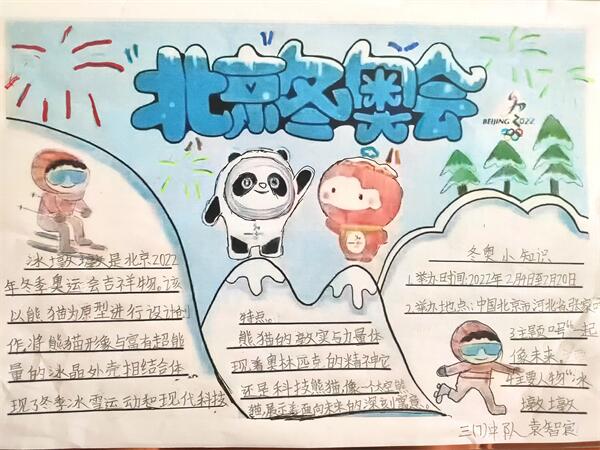 北京冬奥会
BEIJING 2022
冰墩墩是北京2022
年冬季奥运会吉祥物。该
以熊猫为原型进行设计创
作,将熊猫形象与富有超能
量的冰晶外壳相结合体
现了冬季冰雪运动和现代科技
特点。
熊猫的敦实与力量体
现着奥林匹克的精神它
还是科技熊猫像一位空
猫,展示着面向未来的深刻寓意。
冬奥小知识
1.举办日时间:2022年2月4日至2月20日
2.举办地点:中国北京市河北省张家
3.主题口号"一起
像未来,
4.主要人物"冰
墩墩
三(7)中队 袁智宸